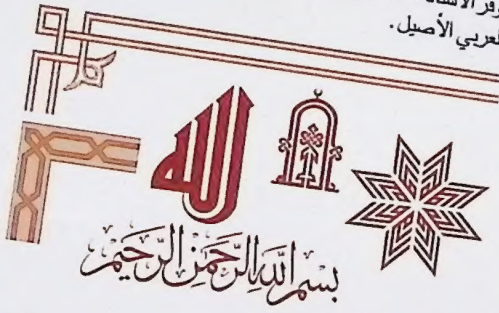 العربي الأصيل.
الله
بسم الله الرحمن الرحيم